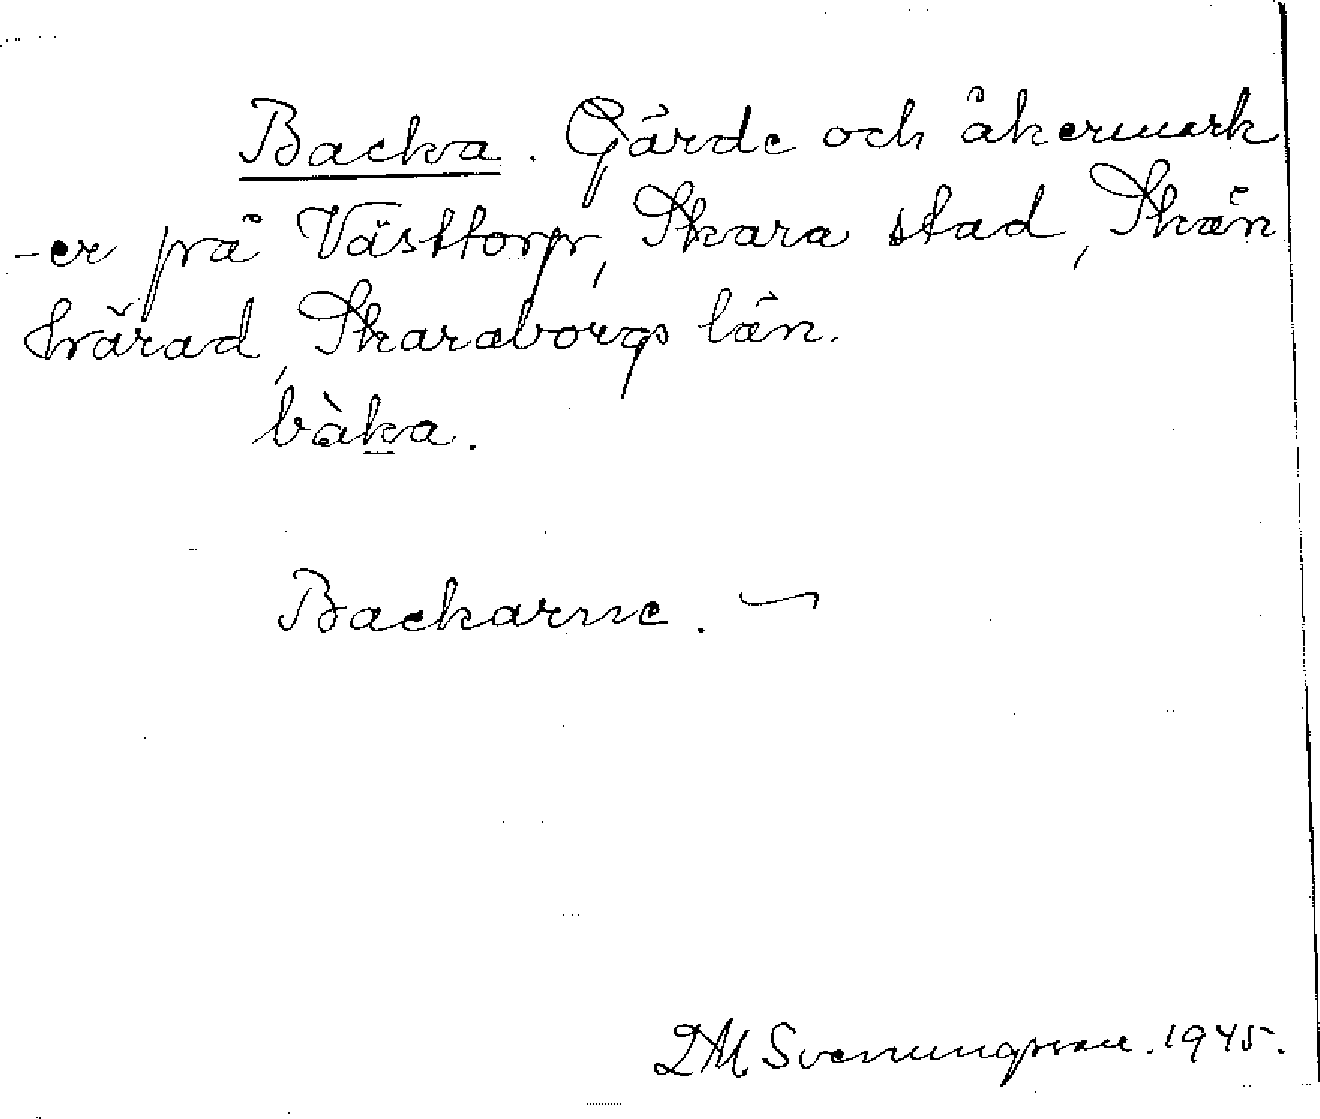 Backa. Gärde och åkermark
-er på Västtorp, Skara stad, Skån
härad, Skaraborgs län.
bàka.
Backarne. ~
Svenungsson. 1945.